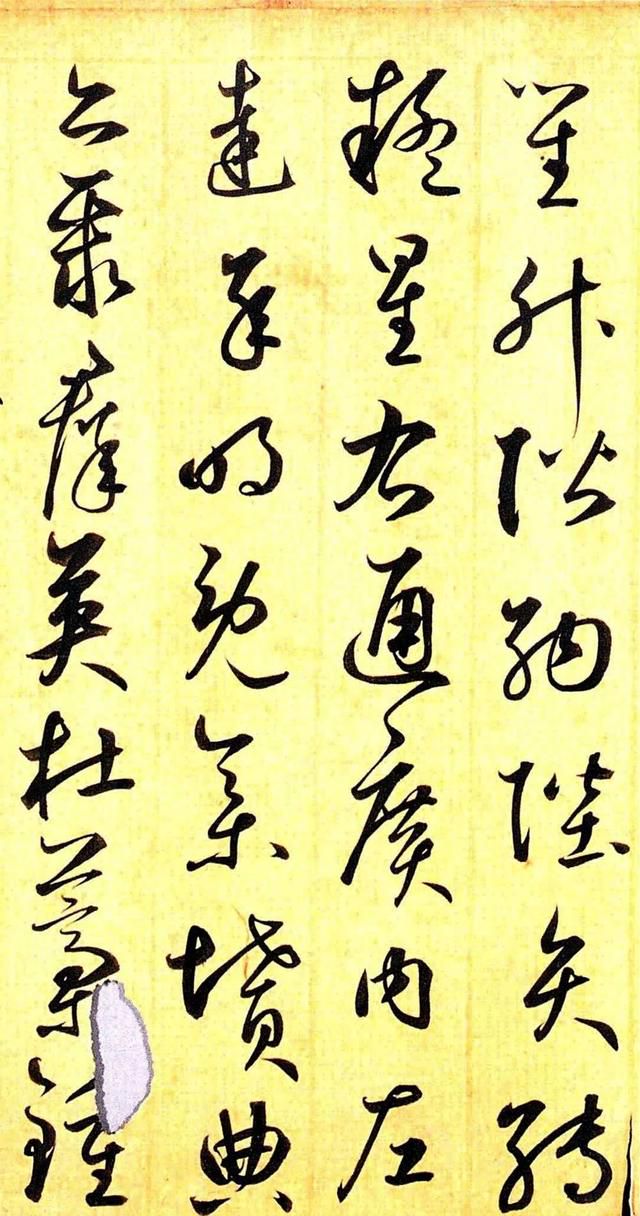 笙升階納陛弁轉
疑星右通廣內左
達承明既集墳典
亦聚群英杜藁鍾